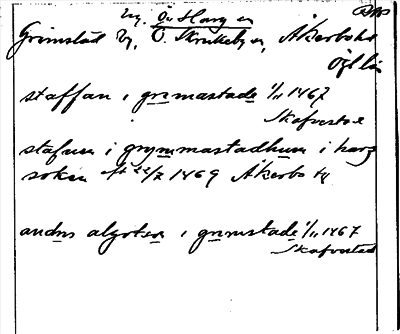 ng. Ö. Harg sn
Grimstad by, Ö. Skrukeby sn, Åkerbo hd
Ögl län
staffan i grimastade 1/11 1467
Skafvestad
stafuan i grymmastadhum i harg
soken 22/7 1469 Åkerbo hd
anders algotson i grimstade 1/11 1467
Skafvestad